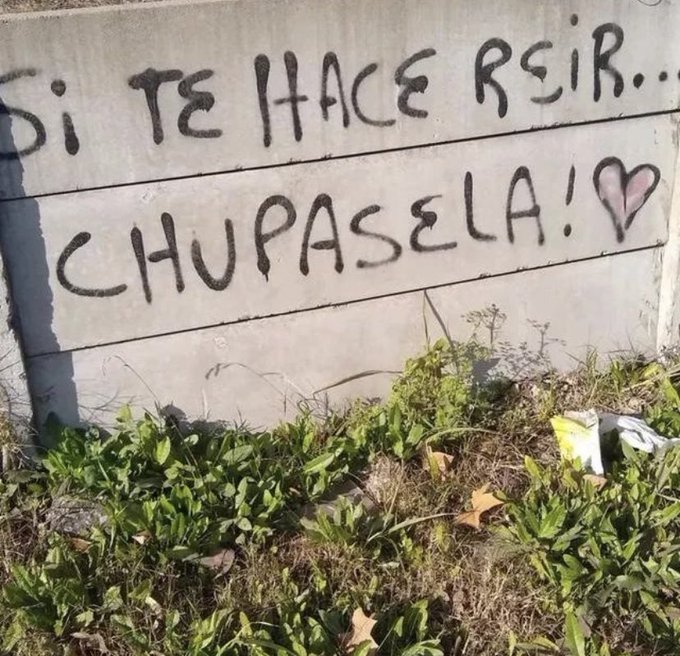 Si TE HACE REiR...
CHUPASELA!